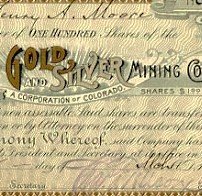 Henry A. Moore
of ONE HUNDRED Shares of the
GOLD
AND SILVER MINING CO
A CORPORATION OF COLORADO. SHARES $1.00
non assessable. Said shares are transfer
or by Attorney on the surrender of this
mony Whereof, said Company has
President and Secretary at its office in
Secretary